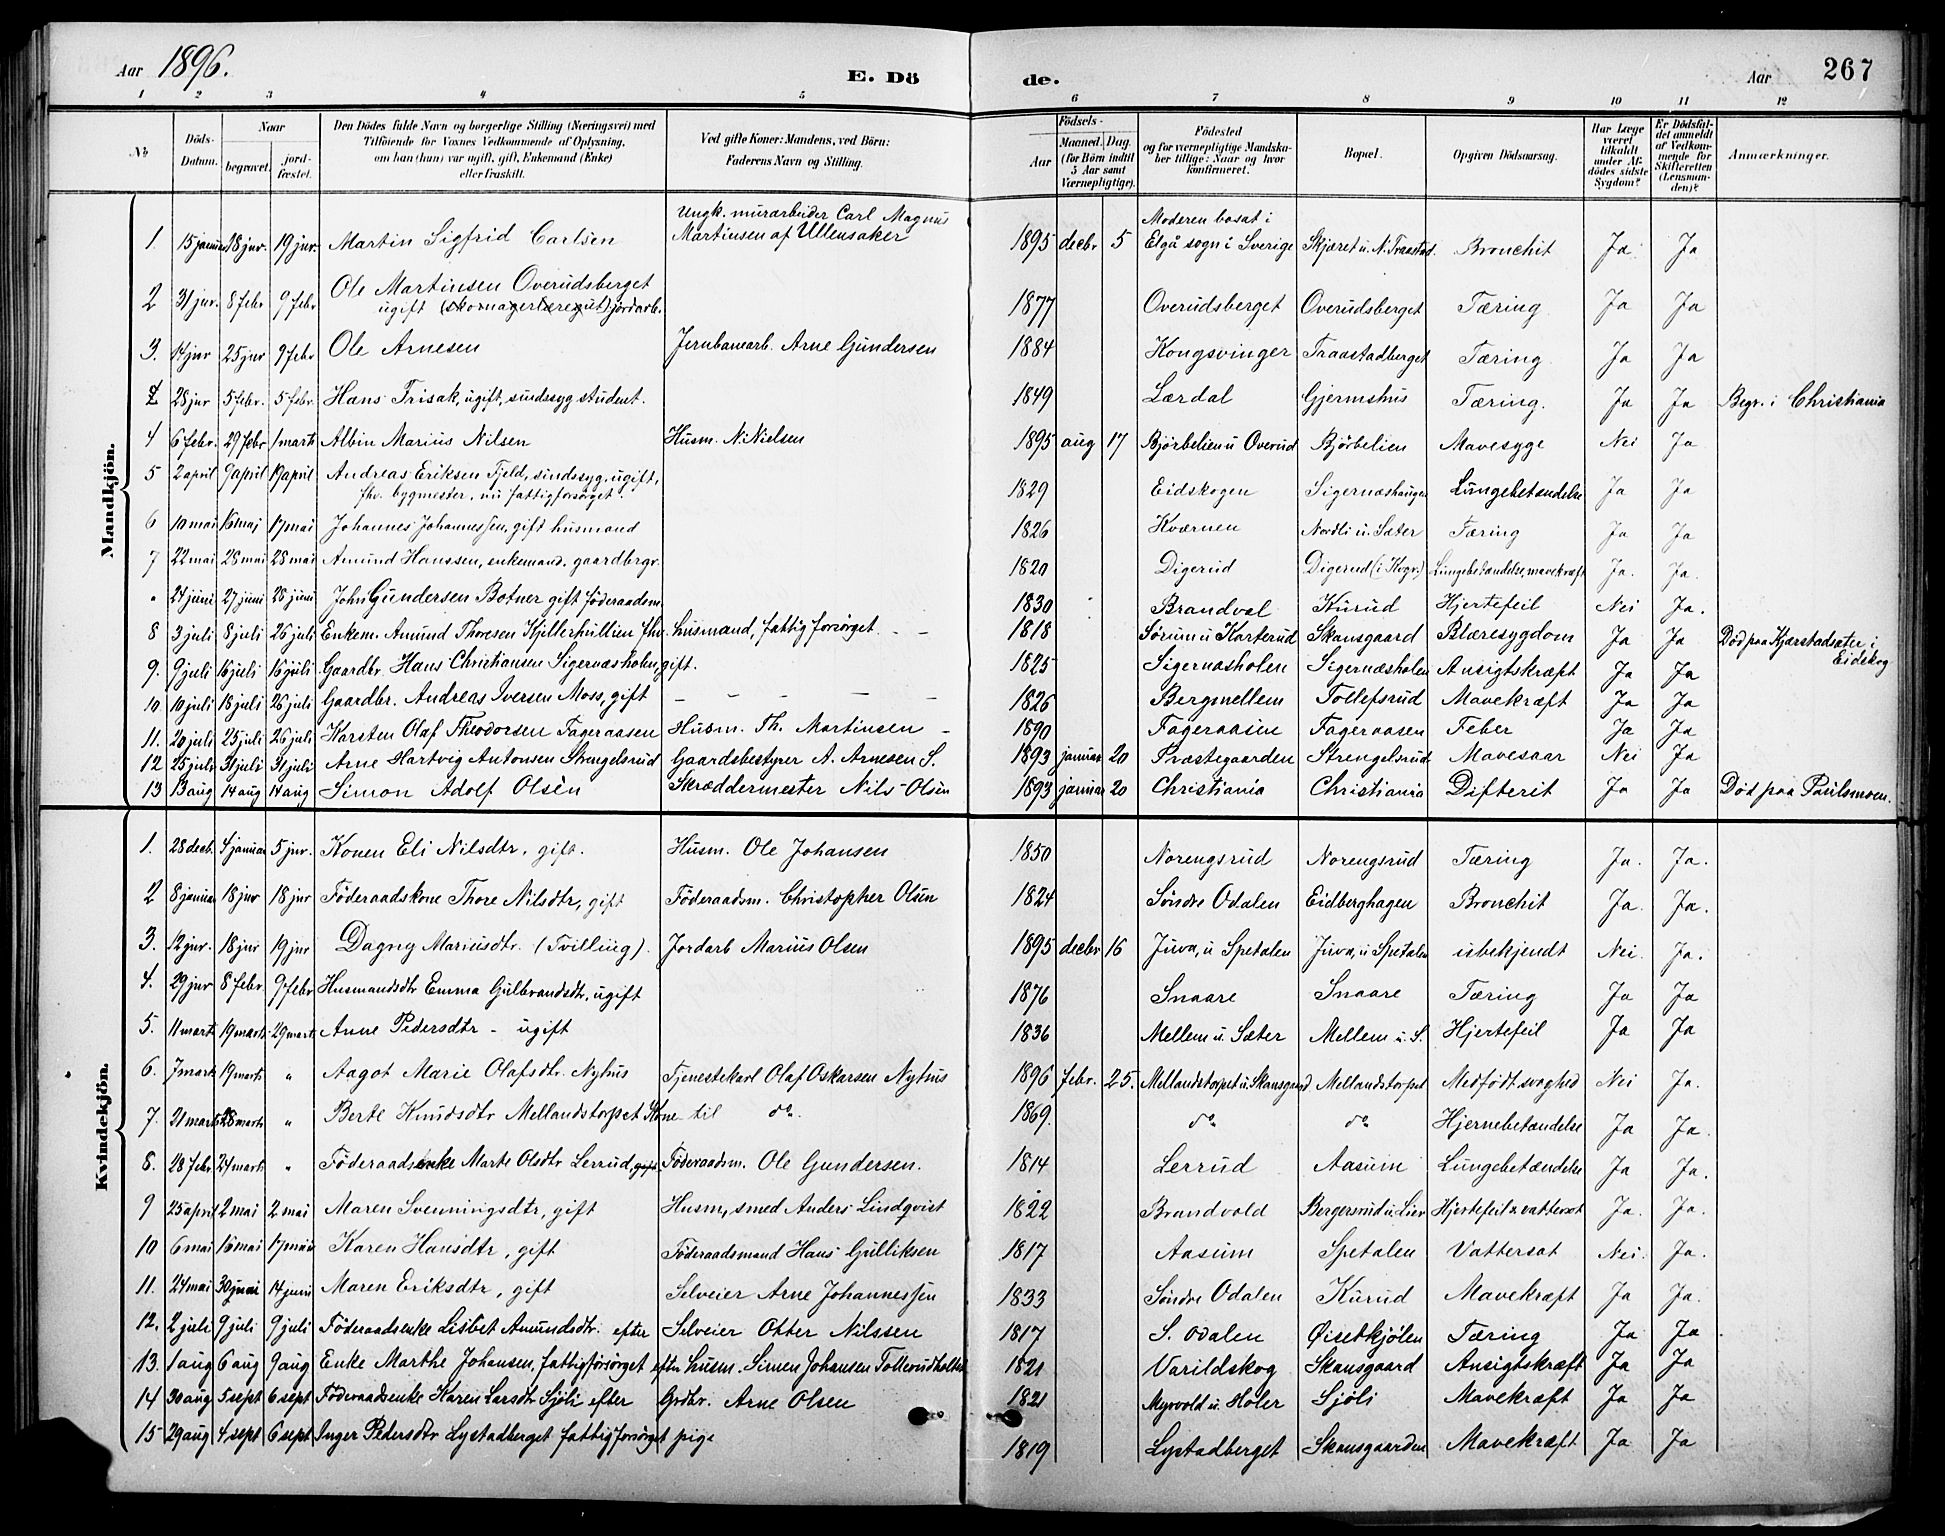 Aar 1896.
E. Dö
de.
Aar
267
1 2 3 4 5 6 7 8 9 10 11 12
No
Döds-Datum.
Naar
begravet.
jordfæstet.
Den Dödes fulde Navn og borgerlige Stilling (Næringsvei) med
Tilföiende for Voxnes Vedkommende af Oplysning,
om han (hun) var ugift, gift, Enkemand (Enke)
eller fraskilt.
Ved gifte Koner: Mandens, ved Börn:
Faderens Navn og Stilling.
Födsels-
Aar
Maaned. Dag.
(for Börn indtil
5 Aar samt
Værnepligtige).
Födested
og for værnepligtige Mandska-
ber tillige: Naar og hvor
konfirmeret.
Bopæl.
Opgiven Dödsaarsag.
Har Læge
været
tilkaldt
under Af-
dödes sidste
Sygdom?
Er Dödsfal-
det anmeldt
af Vedkom-
mende for
Skifteretten
(Lensman-
den)?
Anmærkninger.
Mandkjön.
Ungk. murarbeider Carl Magnus
Moderen bosat i
1. 15 januar 18 jnr. 19 jnr. Martin Sigfrid Carlsen Martinsen af Ullensaker 1895 decbr 5 Elgå sogn i Sverige Skjæret u. N. Traastad. Bronchit Ja Ja
2 31 jnr. 8 febr 9 febr Ole Martinsen Overudsberget 1877 Overudsberget Overudsberget Tæring Ja Ja
ugift (skomagerlæregut) jordarb.
3. 14 jnr 25 jnr 9 febr Ole Arnesen Jernbanearb. Arne Gundersen 1884 Kongsvinger Traastadberget Tæring Ja Ja
28 jnr 5 febr. 5 febr. Hans Frisak, ugift, sindssyg student. 1849 Lærdal Gjermshus Tæring. Ja Ja Begr. i Christiania
4 6 febr. 29 febr 1 marts Albin Marius Nilsen Husm. N. Nielsen 1895 aug 17 Bjørbelien u Overud Bjørbelien Mavesyge Nei Ja
5 2 april 9 april 19 april Andreas Eriksen Fjeld, sindssyg, ugift, 1829 Eidskogen Sigernæshaugen Lungebetændelse Ja Ja
fhv. bygmester, nu fattigforsørget.
6 10 mai 16 maj 17 mai Johannes Johannessen, gift husmand 1826 Kværnen Nordli u. Sæter Tæring Ja Ja
7 22 mai 28 mai 28 mai Amund Hanssen, enkemand. gaardbrgr. 1820 Digerud Digerud (i Kvgr.) Lungebetændelse, mavekræft Ja. Ja.
" 24 juni 27 juni 28 juni John Gundersen Botner gift föderaadsm. 1830 Brandval Kurud Hjertefeil Nei Ja.
8 3 juli 8 juli 26 juli Enkem. Amund Thoresen Kjillerhullien fhv. husmand, fattigforsørget - - 1818 Sørum u Karterud Skansgaard Blæresygdom Ja Ja Død paa Kjærstadsæter i
Eidskog
9. 9 juli 16 juli 16 juli Gaardbr. Hans Christiansen Sigernæsholen, gift. 1825 Sigernæsholen Sigernæsholen Ansigtskræft Ja Ja
10 10 juli 18 juli 26 juli Gaardbr. Andreas Iversen Moss, gift - - - - - 1826 Bergmellem Tollefsrud Mavekræft Ja Ja
11. 20 juli 25 juli 26 juli Karsten Olaf Theodorsen Fageraasen Husm. Th. Martinsen - 1890 Fageraasen Fageraasen Feber Ja Ja
12 25 juli 31 juli 31 juli Arne Hartvig Antonsen Strengelsrud Gaardsbestyrer A. Arnesen S. 1893 januar 20 Præstegaarden Strengelsrud Mavesaar Nei Ja
13 13 aug 14 aug 14 aug Simon Adolf Olsen Skræddermester Nils Olsen 1893 januar 20 Christiania Christiania Difterit Ja Ja Død paa Paulsmoen.
Kvindekjön.
1. 28 decb. 4 januar 5 jnr. Konen Eli Nilsdtr, gift. Husm. Ole Johansen 1850 Norengsrud Norengsrud Tæring Ja. Ja.
2 8 januar 18 jnr 18 jnr Föderaadskone Thore Nilsdtr, gift Föderaadsm. Christopher Olsen 1824 Søndre Odalen Eidberghagen Bronchit Ja. Ja.
3. 12 jnr. 18 jnr 19 jnr Dagny Mariusdtr. (Tvilling). Jordarb Marius Olsen 1895 decbr 16 Juva, u Spetalen Juva, u Spetalen ubekjendt Nei. Ja.
4. 29 jnr 8 febr. 9 febr Husmandsdtr Emma Gulbrandsdtr, ugift 1876 Snaare Snaare Tæring Ja Ja
5. 11 marts 19 marts 29 marts Anne Pedersdtr - ugift 1836 Mellem u. Sæter Mellem u. S. Hjertefeil Ja Ja
6. 7 marts 19 marts " Aagot Marie Olafsdtr. Nyhus Tjenestekarl Olaf Oskarsen Nyhus 1896 febr. 25. Mellandstorpet u. Skansgaard Mellandstorpet Medfødt svaghed Nei Ja.
7. 21 marts 28 marts " Berte Knudsdtr Mellandstorpet Kone til do. 1869. do do Hjernebetændelse Ja Ja.
8. 28 febr 24 marts " Föderaadsenke Marte Olsdtr Lerrud, gift Föderaadsm. Ole Gundersen. 1814 Lerrud Aasum Lungebetændelse Ja Ja.
9 25 april 2 mai 2 mai Maren Svenningsdtr, gift Husm, smed Anders Lindqvist 1822 Brandvold Bergersrud u. Lier Hjertefeil & vattersot Ja. Ja.
10 6 mai 16 mai 17 mai Karen Hansdtr, gift Föderaadsmand Hans Gulliksen 1817 Aasum Spetalen Vattersot Nei. Ja.
11. 24 mai 30 mai 14 juni Maren Eriksdtr, gift Selveier Arne Johannessen 1833 Søndre Odalen Kurud Mavekræft Ja Ja.
12. 2 juli 9 juli 9 juli Föderaadsenke Lisbet Amundsdtr. efter Selveier Otter Nilssen 1817 S. Odalen Øisetkjølen Tæring Ja Ja.
13. 1 aug 6 aug 9 aug Enke Marthe Johansen, fattigforsørget efter husm. Simen Johansen 1821 Varildskog Skansgaard Ansigtskræft Ja Ja
14 30 aug 5 sept 6 sept Föderaadsenke Karen Larsdtr Sjøli efter Grdbr. Arne Olsen 1821 Myrvold u. Holer Sjøli Mavekræft Ja Ja
15 29 aug 4 sept 6 sept Inger Pedersdtr Lystadberget fattigforsørget pige 1819 Lystadberget Skansgaarden Mavekræft Ja Ja